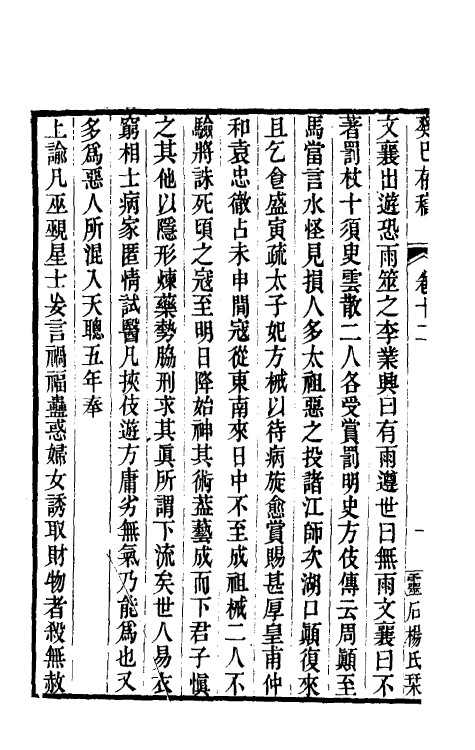 癸巳存稿 卷十二 一 靈石楊氏栞
文襄出遊恐雨筮之李業興曰有雨遵世曰無雨文襄曰不
著罰杖十須史雲散二人各受賞罰明史方伎傳云周顚至
馬當言水怪見損人多太祖惡之投諸江師次湖口顚復來
且乞食盛寅疏太子妃方械以待病旋愈賞賜甚厚皇甫仲
和袁忠徹占未申間寇從東南來日中不至成祖械二人不
驗將誅死頃之寇至明日降始神其術葢藝成而下君子愼
之其他以隱形煉藥勢脇刑求其眞所謂下流矣世人易衣
窮相士病家匿情試醫凡挾伎遊方庸劣無氣乃能爲也又
多爲惡人所混入天聰五年奉
上諭凡巫覡星士妄言禍福蠱惑婦女誘取財物者殺無赦